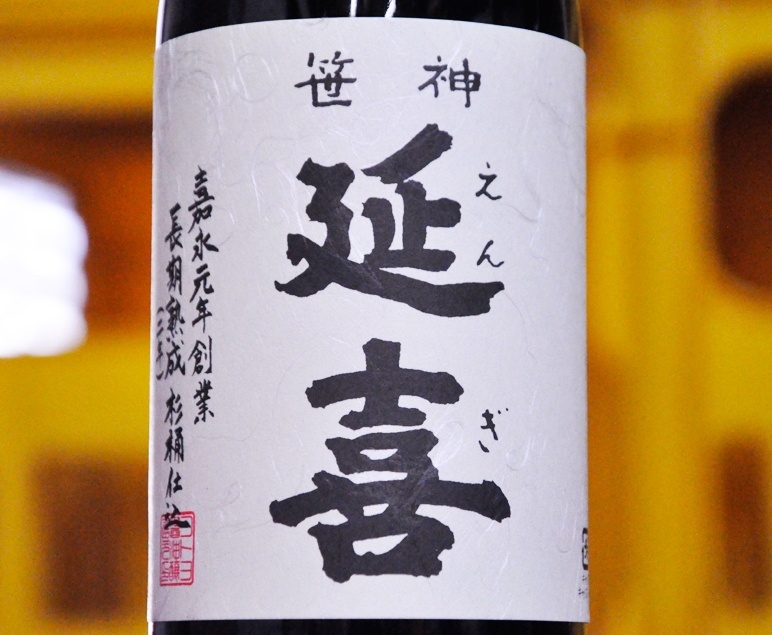 笹神
延喜
えんぎ
嘉永元年創業
長期熟成 杉桶仕込
(三年)